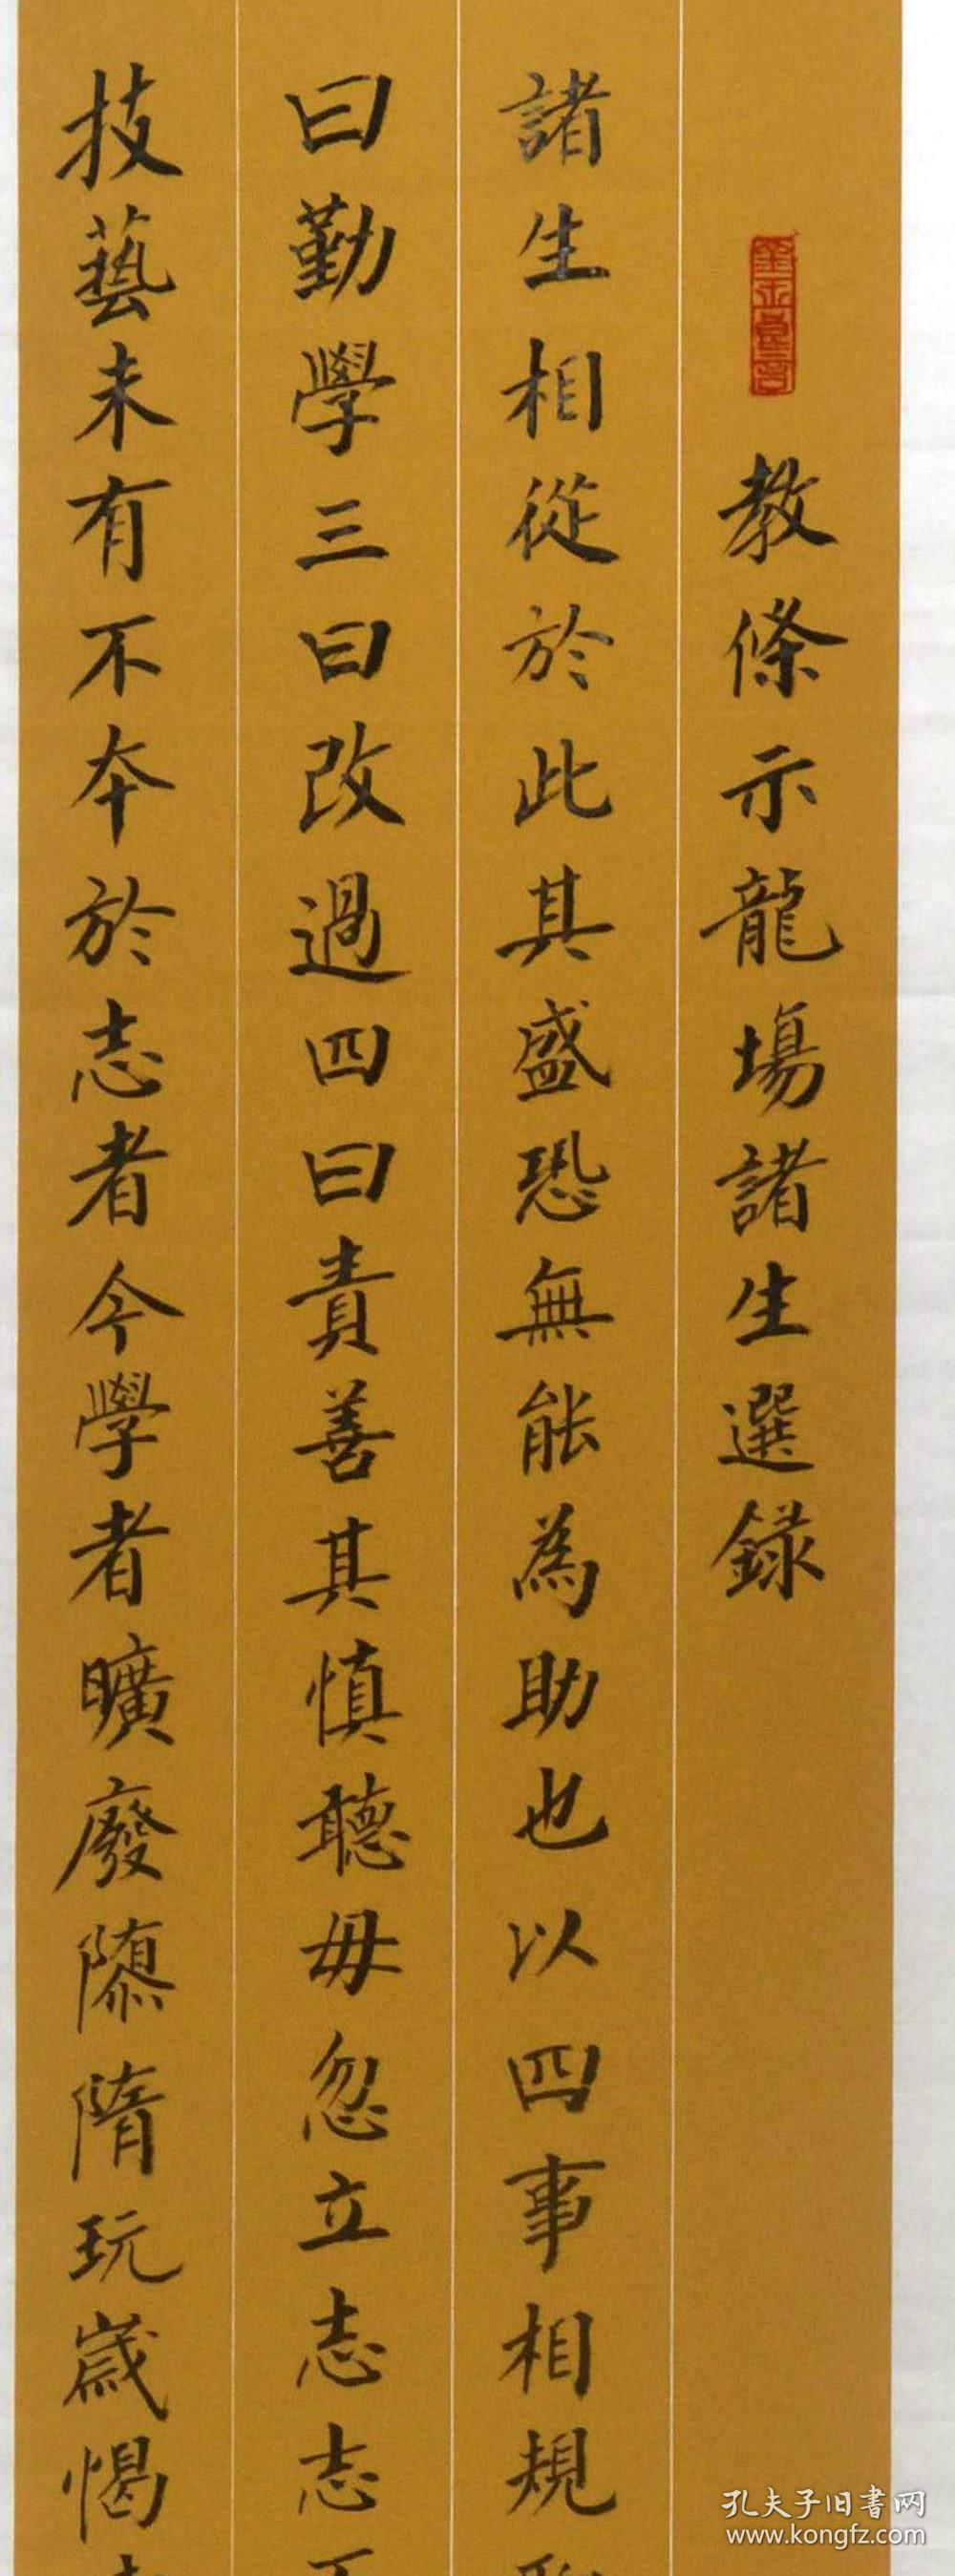 教條示龍場諸生選録
諸生相從於此其盛恐無能為助也以四事相規
曰勤學三曰改過四曰責善其慎聽毋忽立志志
技藝未有不本於志者今學者曠廢隳隋玩歲愒
孔夫子旧书网
www.kongfz.com